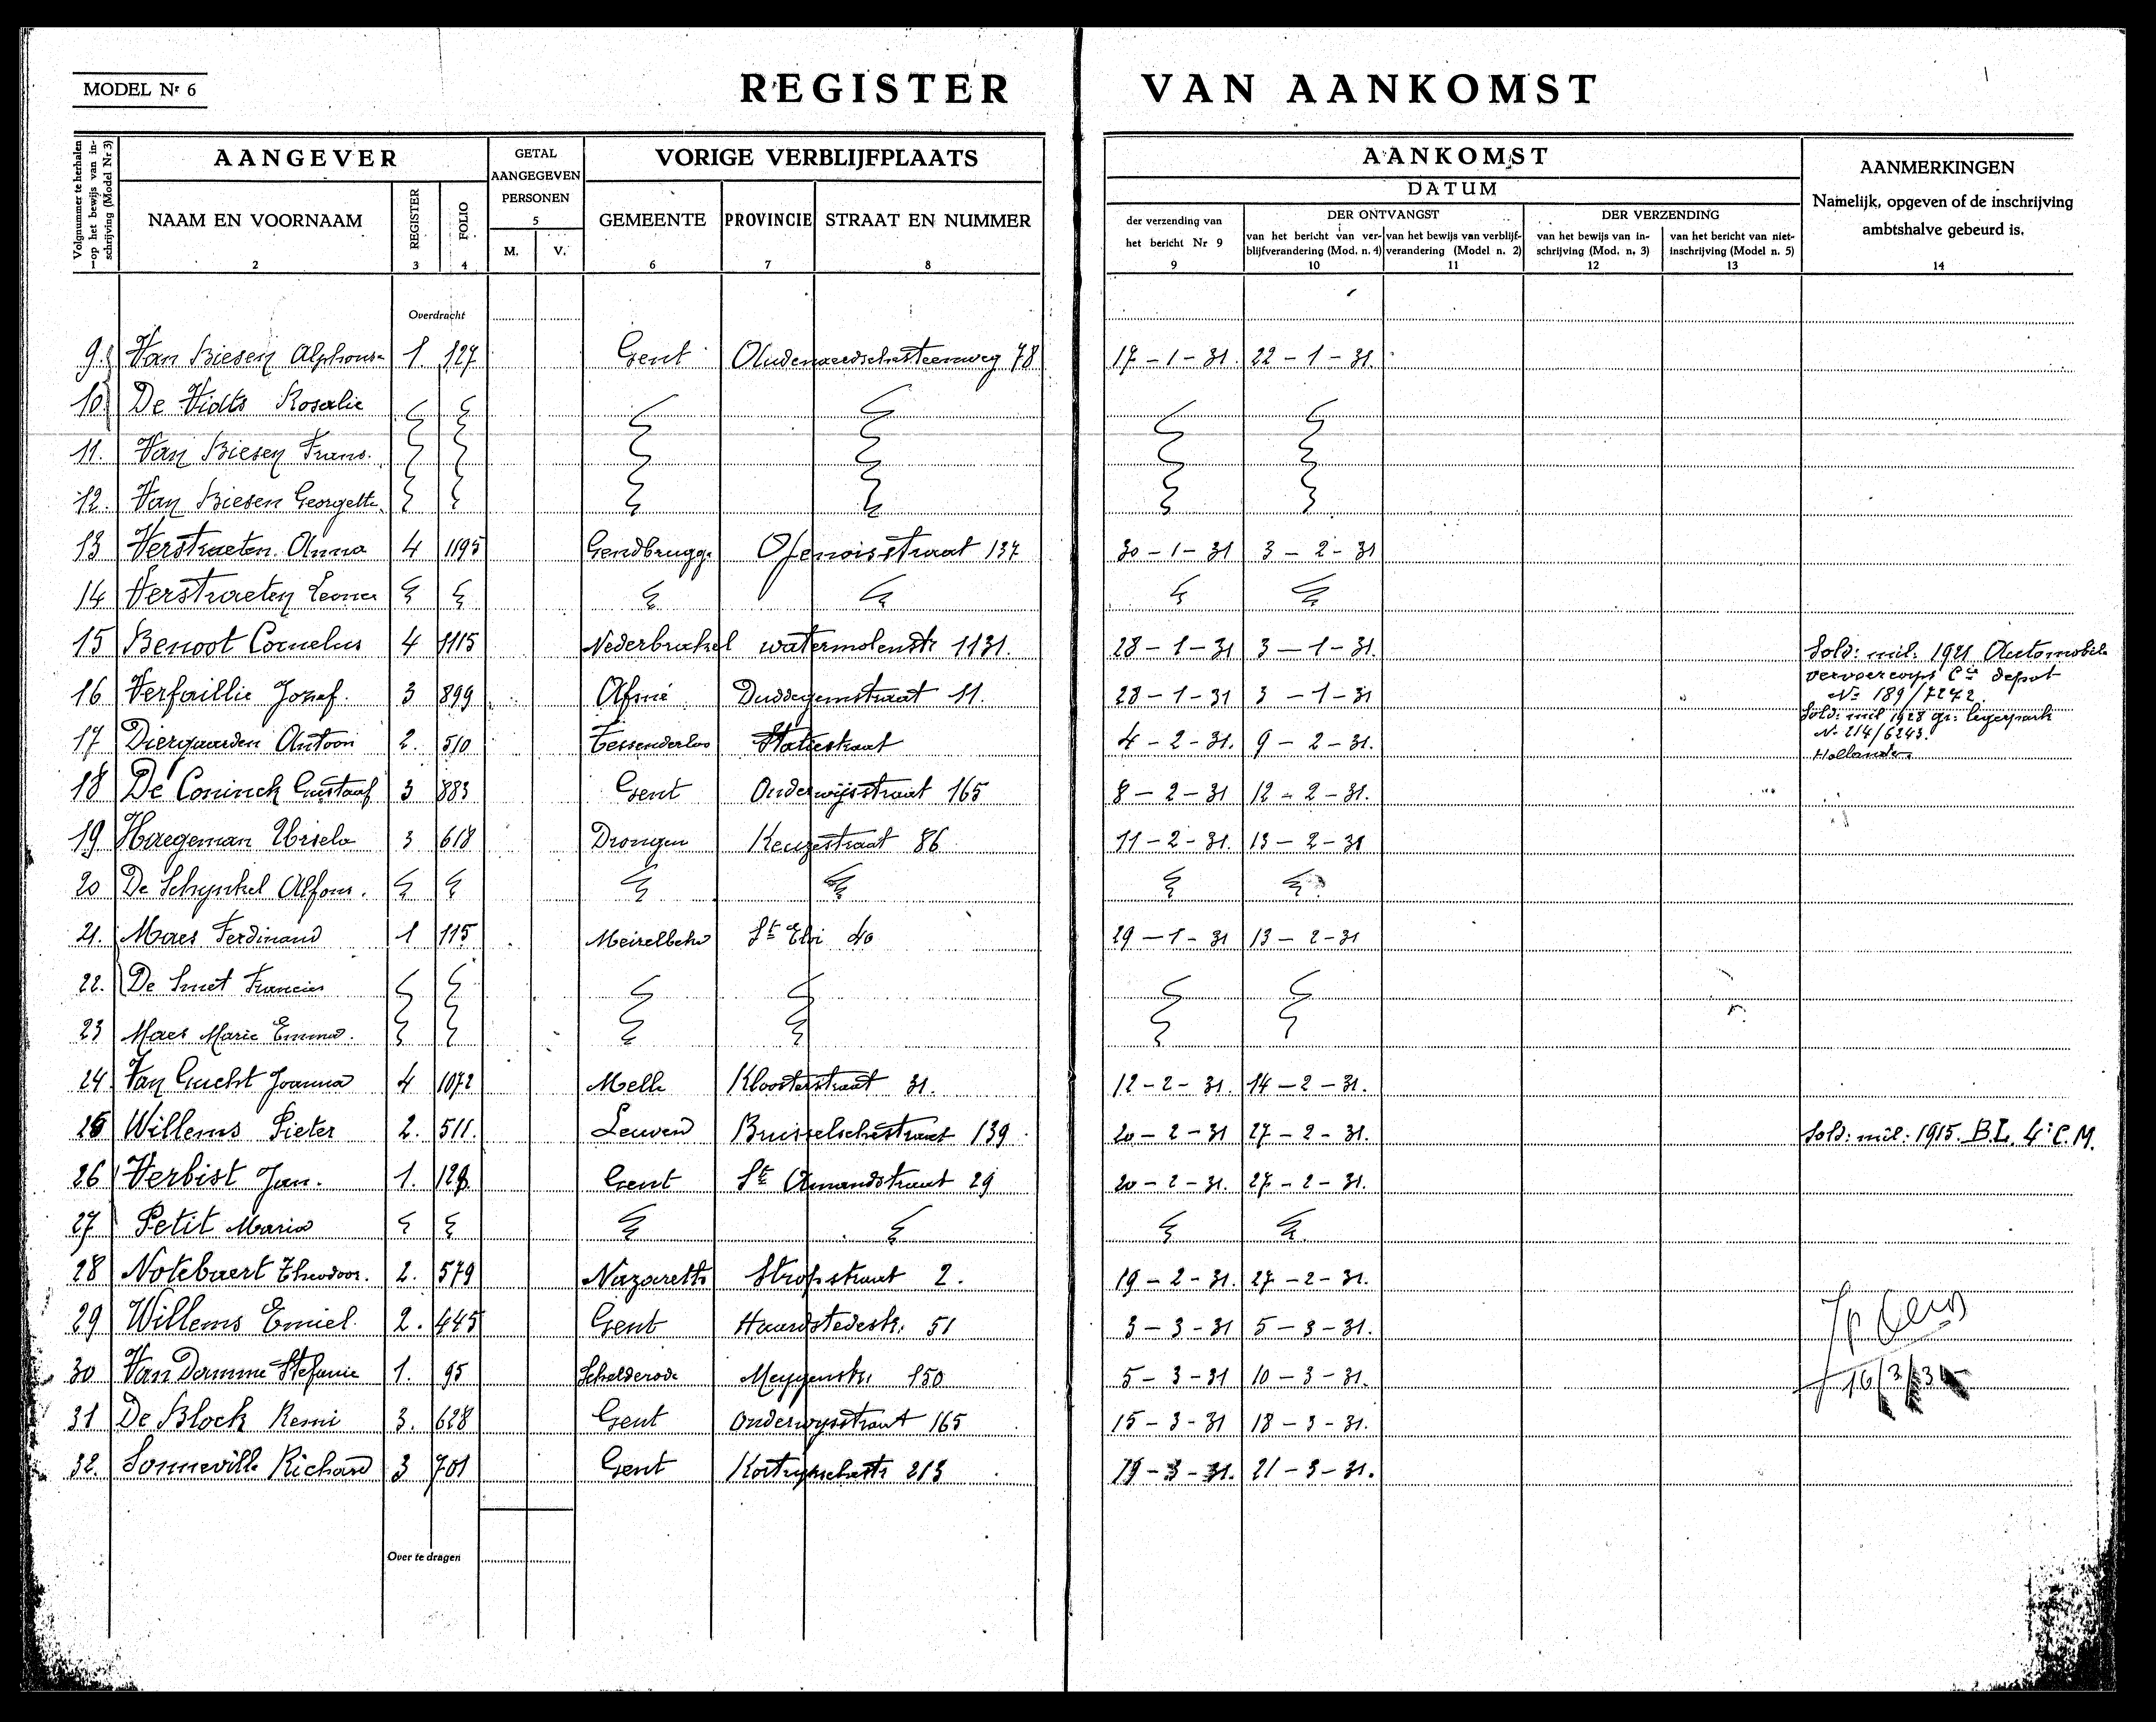 MODEL Nr 6
REGISTER VAN AANKOMST
Volgnummer te herhalen op het bewijs van inschrijving (Model Nr 3)
AANGEVER
GETAL AANGEGEVEN PERSONEN
VORIGE VERBLIJFPLAATS
AANKOMST
AANMERKINGEN
Namelijk, opgeven of de inschrijving ambtshalve gebeurd is.
DATUM
NAAM EN VOORNAAM REGISTER FOLIO M. V. GEMEENTE PROVINCIE STRAAT EN NUMMER
der verzending van het bericht Nr 9
DER ONTVANGST
DER VERZENDING
van het bericht van verblijfverandering (Mod. n. 4)
van het bewijs van verblijfverandering (Model n. 2)
van het bewijs van inschrijving (Mod. n. 3)
van het bericht van niet-inschrijving (Model n. 5)
1 2 3 4 5 6 7 8 9 10 11 12 13 14
Overdracht
9. Van Biesen Alphonse 1. 127 Gent Oudenaardschesteenweg 78 17-1-31. 22-1-31.
10 De Vidts Rosalie
11. Van Biesen Frans.
12. Van Biesen Georgette
13 Verstraeten Anna 4 1195 Gendbrugge 137 30-1-31 3-2-31
14 Verstraeten Leonce
15 Benoot Cornelus 4 1115 Nederbrakel watermolenstr 1131. 28-1-31 3-1-31. Sold: mil: 1921 Automobile
vervoercorps Cie depot
No 189/7272.
16 Verfaillie Jozef. 3 899 Afsné Duddegemstraat 11. 28-1-31 3-1-31
Sold: mil 1928 gr: legerpark
No 214/6243.
17 Diergaarden Antoon 2. 510 Tessenderloo Statiestraat 4-2-31. 9-2-31. Hollander
18 De Coninck Gustaaf 3 883 Gent Onderwijsstraat 165 8-2-31 12-2-31.
19 Haegeman Ursela 3 618 Drongen Keuzestraat 86 11-2-31. 13-2-31
20 De Schynkel Alfons.
21. Maes Ferdinand 1 115 Meirelbeke St Eloi 40 29-1-31 13-2-31
22. De Smet Francies
23 Maes Marie Emma.
24 Van Gucht Joanna 4 1072 Melle Kloosterstraat 31. 12-2-31. 14-2-31.
25 Willems Pieter 2. 511. Leuven Brusselschestraat 139. 20-2-31 27-2-31. Sold: mil: 1915. B.L. 4e C.M.
26 Verbist Jan. 1. 128 Gent St Amandstraat 29 20-2-31. 27-2-31.
27 Petit Maria
28 Notebaert Theodoor. 2. 579 Nazareth Stropstraat 2. 19-2-31. 27-2-31.
29 Willems Emiel. 2. 445 Gent Haardstedestr. 51 3-3-31 5-3-31.
30 Van Damme Stefanie 1. 95 Schelderode Meygenstr 150 5-3-31 10-3-31. 16/3/31
31 De Block Remi 3. 628 Gent Onderwysstraat 165 15-3-31 18-3-31.
32. Sonneville Richard 3 701 Gent Kortrykschestr 213 19-3-31. 21-3-31.
Over te dragen